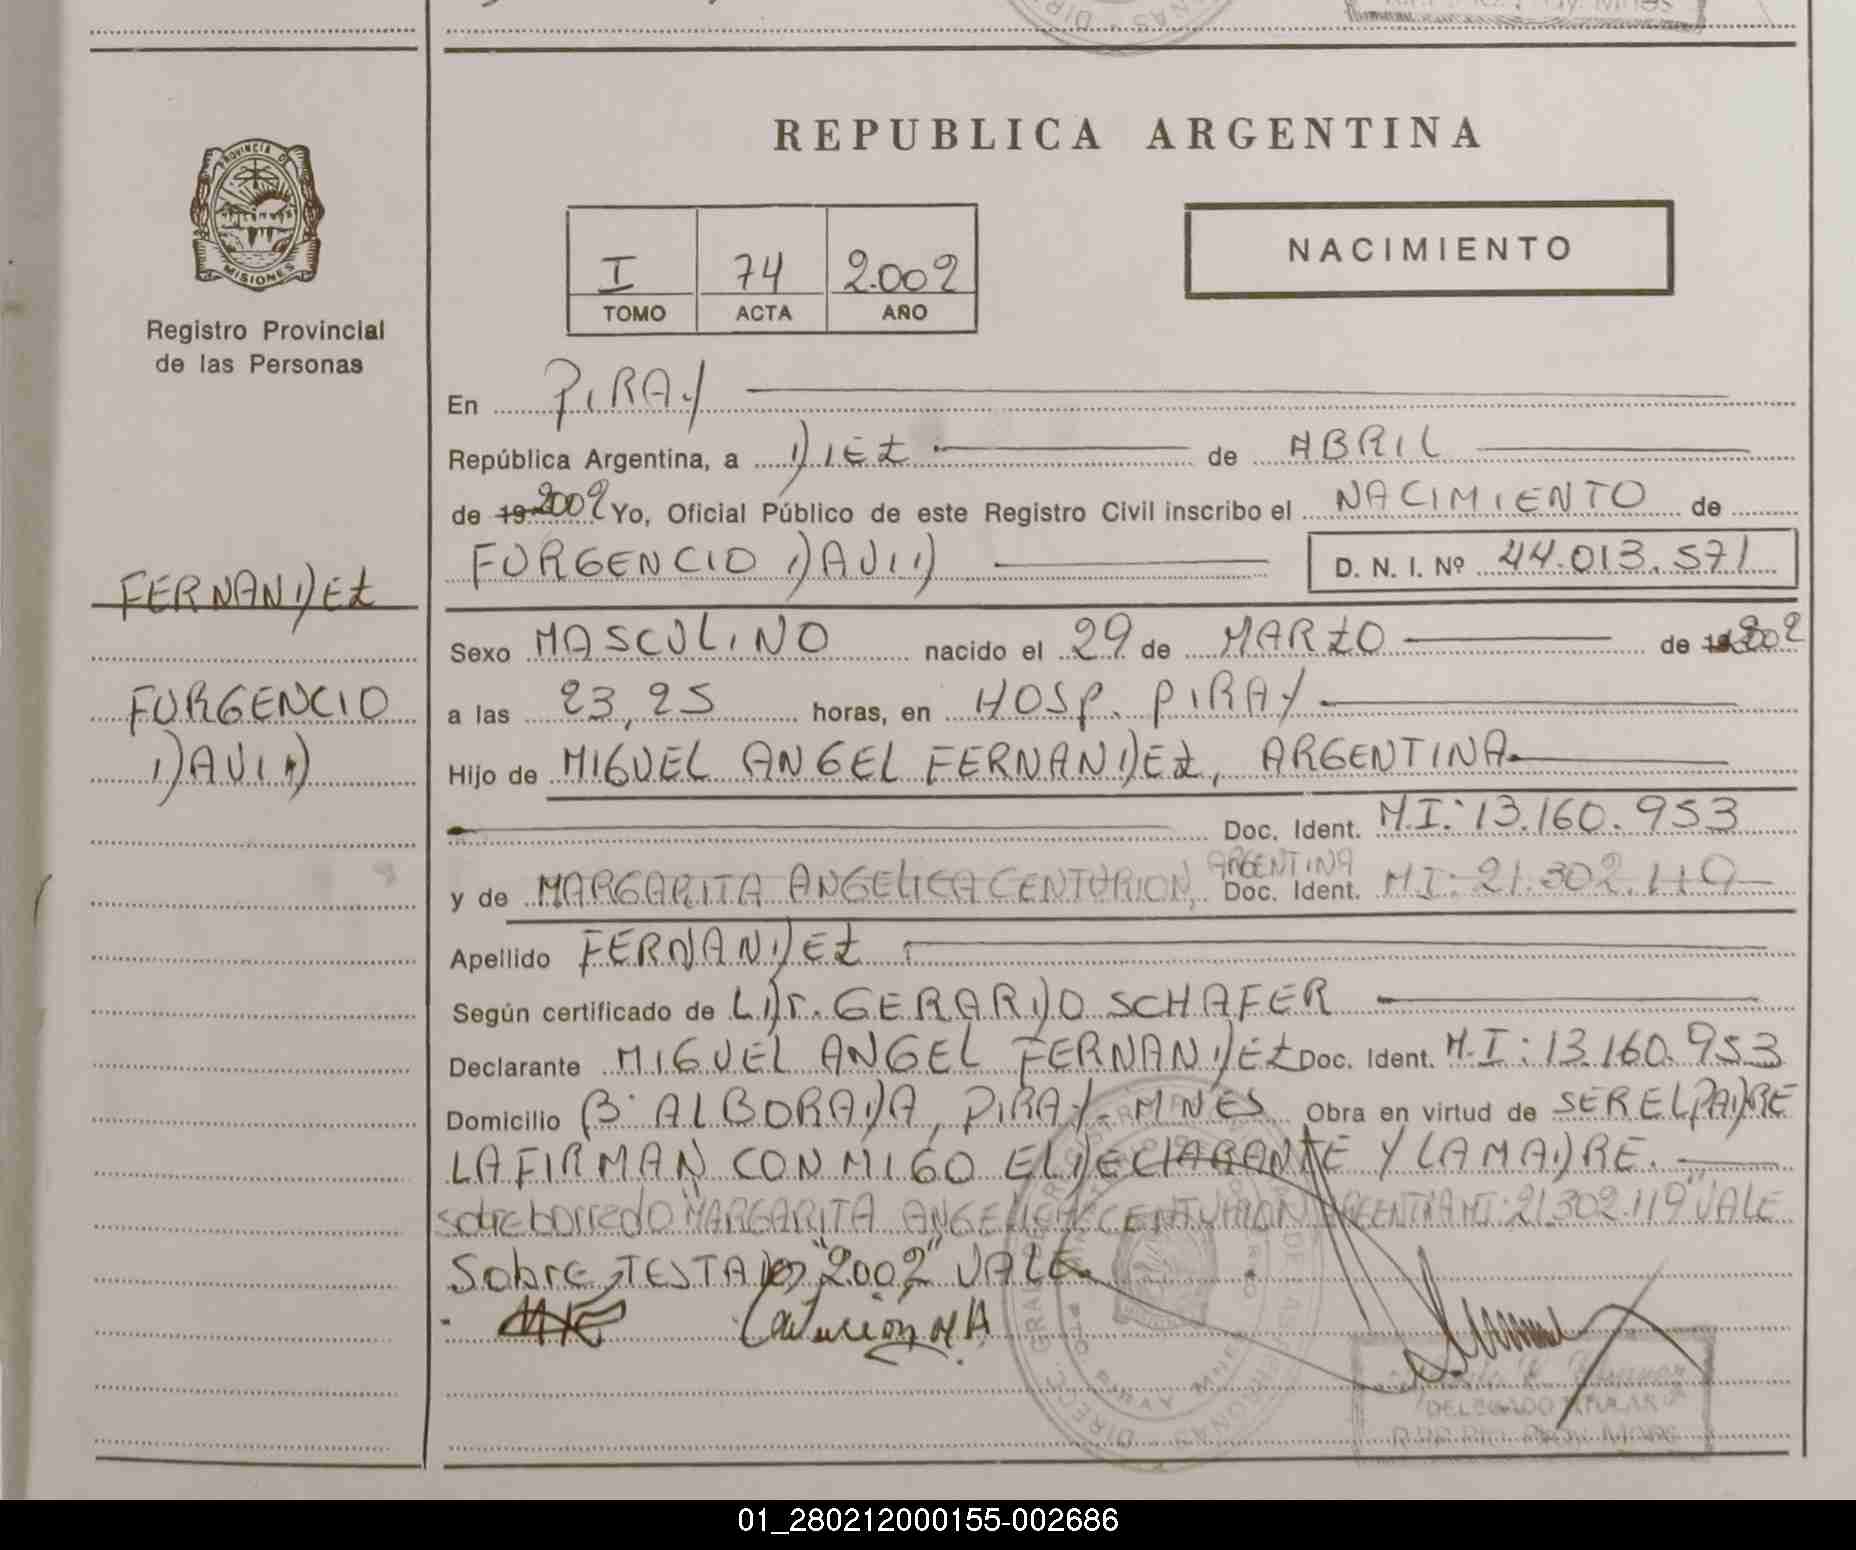 REPUBLICA ARGENTINA
PROVINCIA D
MISIONES
Registro Provincial
de las Personas
I 74 2.002
TOMO ACTA AÑO
NACIMIENTO
En PIRAY
República Argentina, a DIEZ de ABRIL
de 19 2002 Yo, Oficial Público de este Registro Civil inscribo el NACIMIENTO de
FURGENCIO DAVID D. N. I. Nº 44.013.571
FERNANDEZ
FURGENCIO
DAVID
Sexo MASCULINO nacido el 29 de MARZO de 19 2002
a las 23,25 horas, en HOSP. PIRAY
Hijo de MIGUEL ANGEL FERNANDEZ, ARGENTINA
Doc. Ident. M.I: 13.160.953
y de MARGARITA ANGELICA CENTURION, ARGENTINA Doc. Ident. M.I: 21.302.119
Apellido FERNANDEZ
Según certificado de L.Dr. GERARDO SCHAFER
Declarante MIGUEL ANGEL FERNANDEZ Doc. Ident. M.I: 13.160.953
Domicilio Bº ALBORADA, PIRAY-MNES Obra en virtud de SER EL PADRE
LA FIRMAN CONMIGO EL DECLARANTE Y LA MADRE.
sobreborrado "MARGARITA ANGELICA CENTURION ARGENTINA MI: 21.302.119" VALE
Sobre TESTADO "2002" VALE
DELEGADO TITULAR
01_280212000155-002686